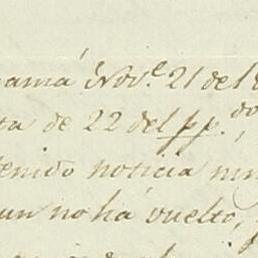 namá Nov.e 21 de 1
ta de 22 del pp.do
tenido noticia nin
un no há vuelto,